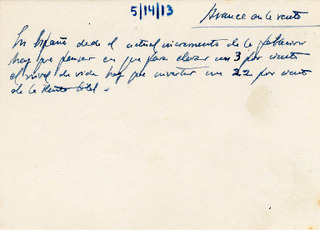 5/14/13
Avance de la renta
En España dado el actual incremento de la población
hay que pensar en que para elevar un 3 por ciento
el nivel de vida hay que invertir un 22 por ciento
de la Renta total.